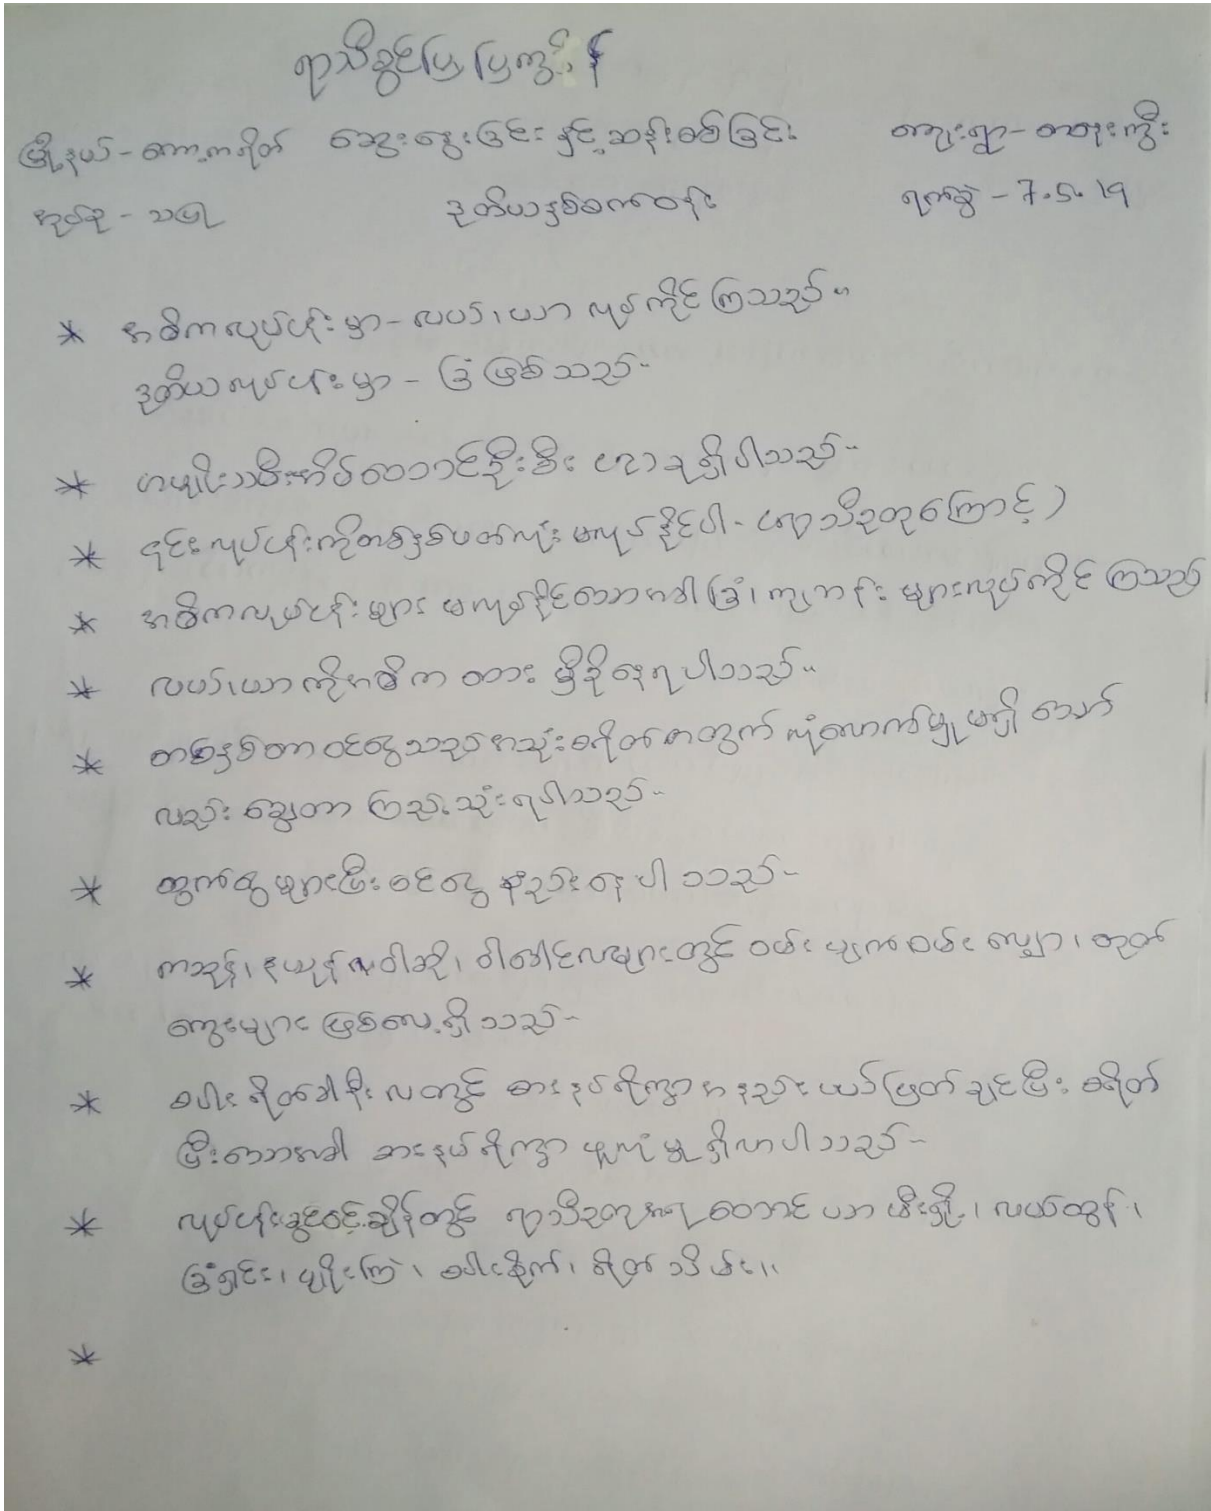 ရာသီခွင်ပြ ပြက္ခဒိန်
မြို့နယ် - ကော့ကရိတ် ဆွေးနွေးခြင်း နှင့် ဆန်းစစ်ခြင်း ကျေးရွာ -
အုပ်စု - ဒုတိယနှစ်စက်ဝန်း ရက်စွဲ - 7.5.19
* အဓိကလုပ်ငန်းမှာ - လယ်၊ ယာ လုပ်ကိုင်ကြသည်။
ဒုတိယလုပ်ငန်းမှာ - ခြံ ဖြစ်သည်။
* အမျိုးသမီးအိမ်ထောင်ဦးစီး ခုရှိပါသည်။
* ၎င်းလုပ်ငန်းကိုတစ်နှစ်ပတ်လုံး မလုပ်နိုင်ပါ - (ရာသီဥတုကြောင့်)
* အဓိကလုပ်ငန်းများ မလုပ်နိုင်သောအခါ ခြံ၊ ကျဘန်း များလုပ်ကိုင်ကြသည်
* လယ်၊ယာ ကိုအဓိက ထား မှီခိုနေရပါသည်။
* တစ်နှစ်တာ ဝင်ငွေသည် အသုံးစရိတ်အတွက် လုံလောက်မှု မရှိသော်
လည်း ချွေတာ ကြည့်သုံးရပါသည်။
* ထွက်ငွေများပြီး ဝင်ငွေ နည်းနေပါသည်။
* ကဆုန်၊ နယုန် ဝါဆို၊ ဝါခေါင်လများတွင် ဝမ်းပျက်ဝမ်းလျှော၊ တုတ်
ကွေးများ ဖြစ်လေ့ရှိသည်။
* စပါးရိတ်ခါနီးလတွင် စားနပ်ရိက္ခာ အနည်းငယ်ပြတ်ချင်ပြီး စရိတ်
ပြီးသောအခါ စားနပ်ရိက္ခာ ဖူလုံမှု ရှိလာပါသည်။
* လုပ်ငန်းခွင်ဝင်ချိန်တွင် ရာသီဥတုအရ တောင်ယာ မီးရှို့၊ လယ်ထွန်၊
ခြံရှင်း၊ မျိုးကြဲ၊ စပါးစိုက်၊ ရိတ်သိမ်း။
*